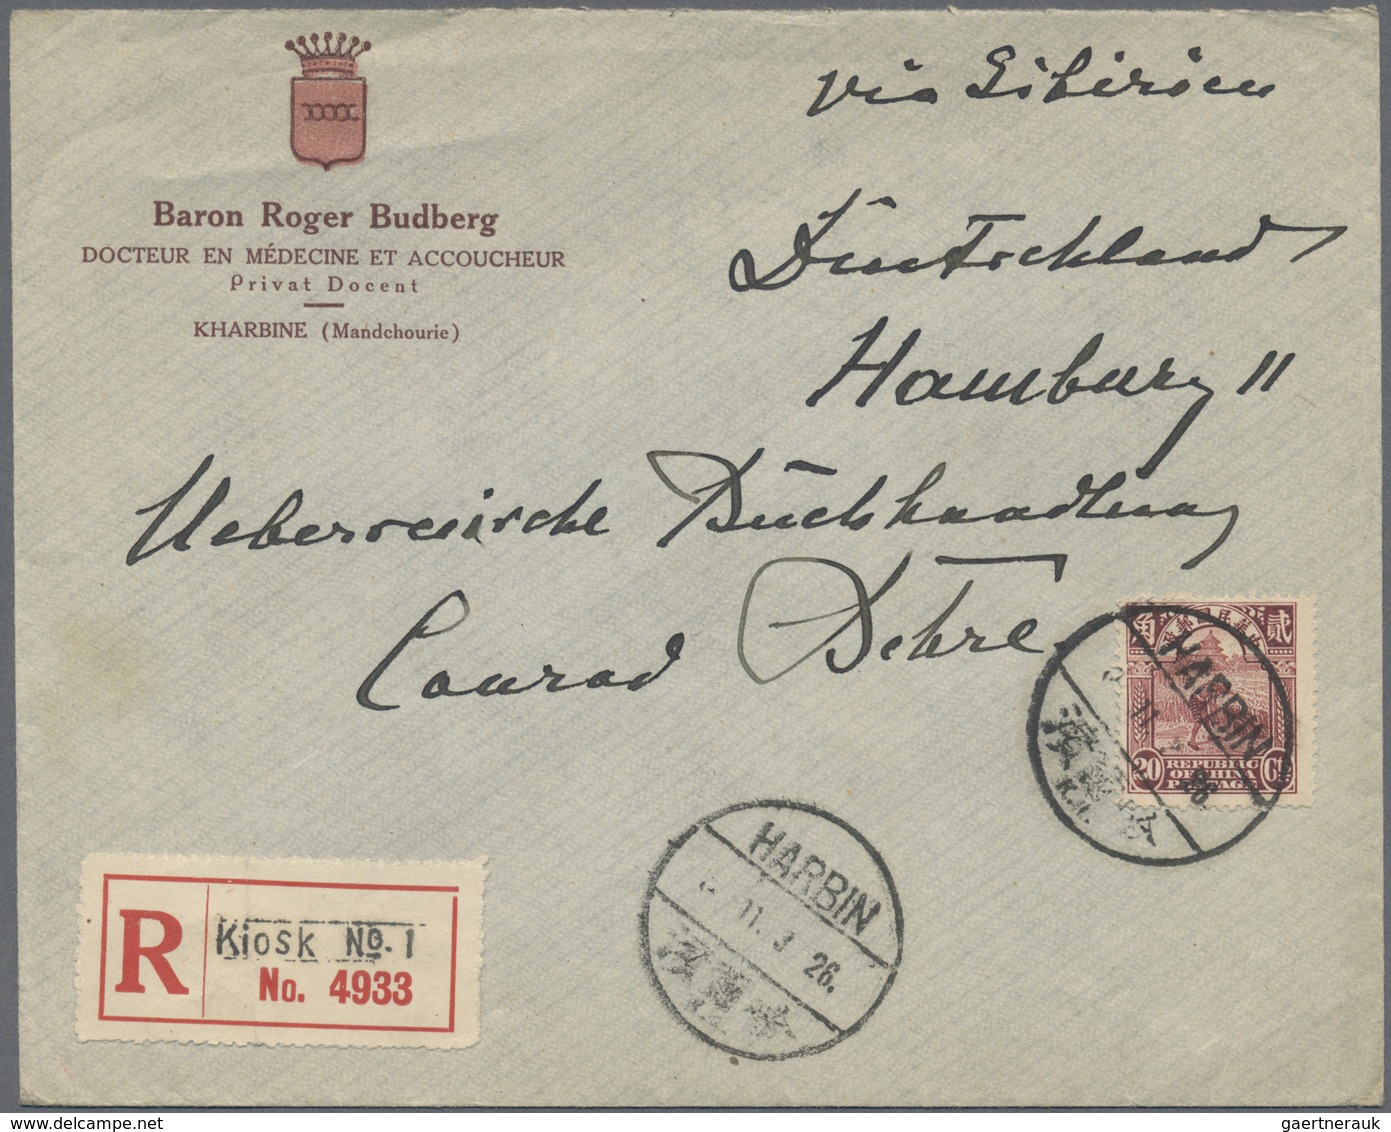 Baron Roger Budberg
DOCTEUR EN MÉDECINE ET ACCOUCHEUR
Privat Docent
KHARBINE (Mandchourie)
via Sibirien
Deutschland
Hamburg 11
Ueberseeische Buchhandlung
Conrad Behre.
貳 中華民國郵政 角
REPUBLIC
20 OF CHINA Cts
POSTAGE
HARBIN
11.
26.
濱爾哈
HARBIN
11. 3 26.
濱爾哈
R Kiosk No. 1
No. 4933
gaertnerauk